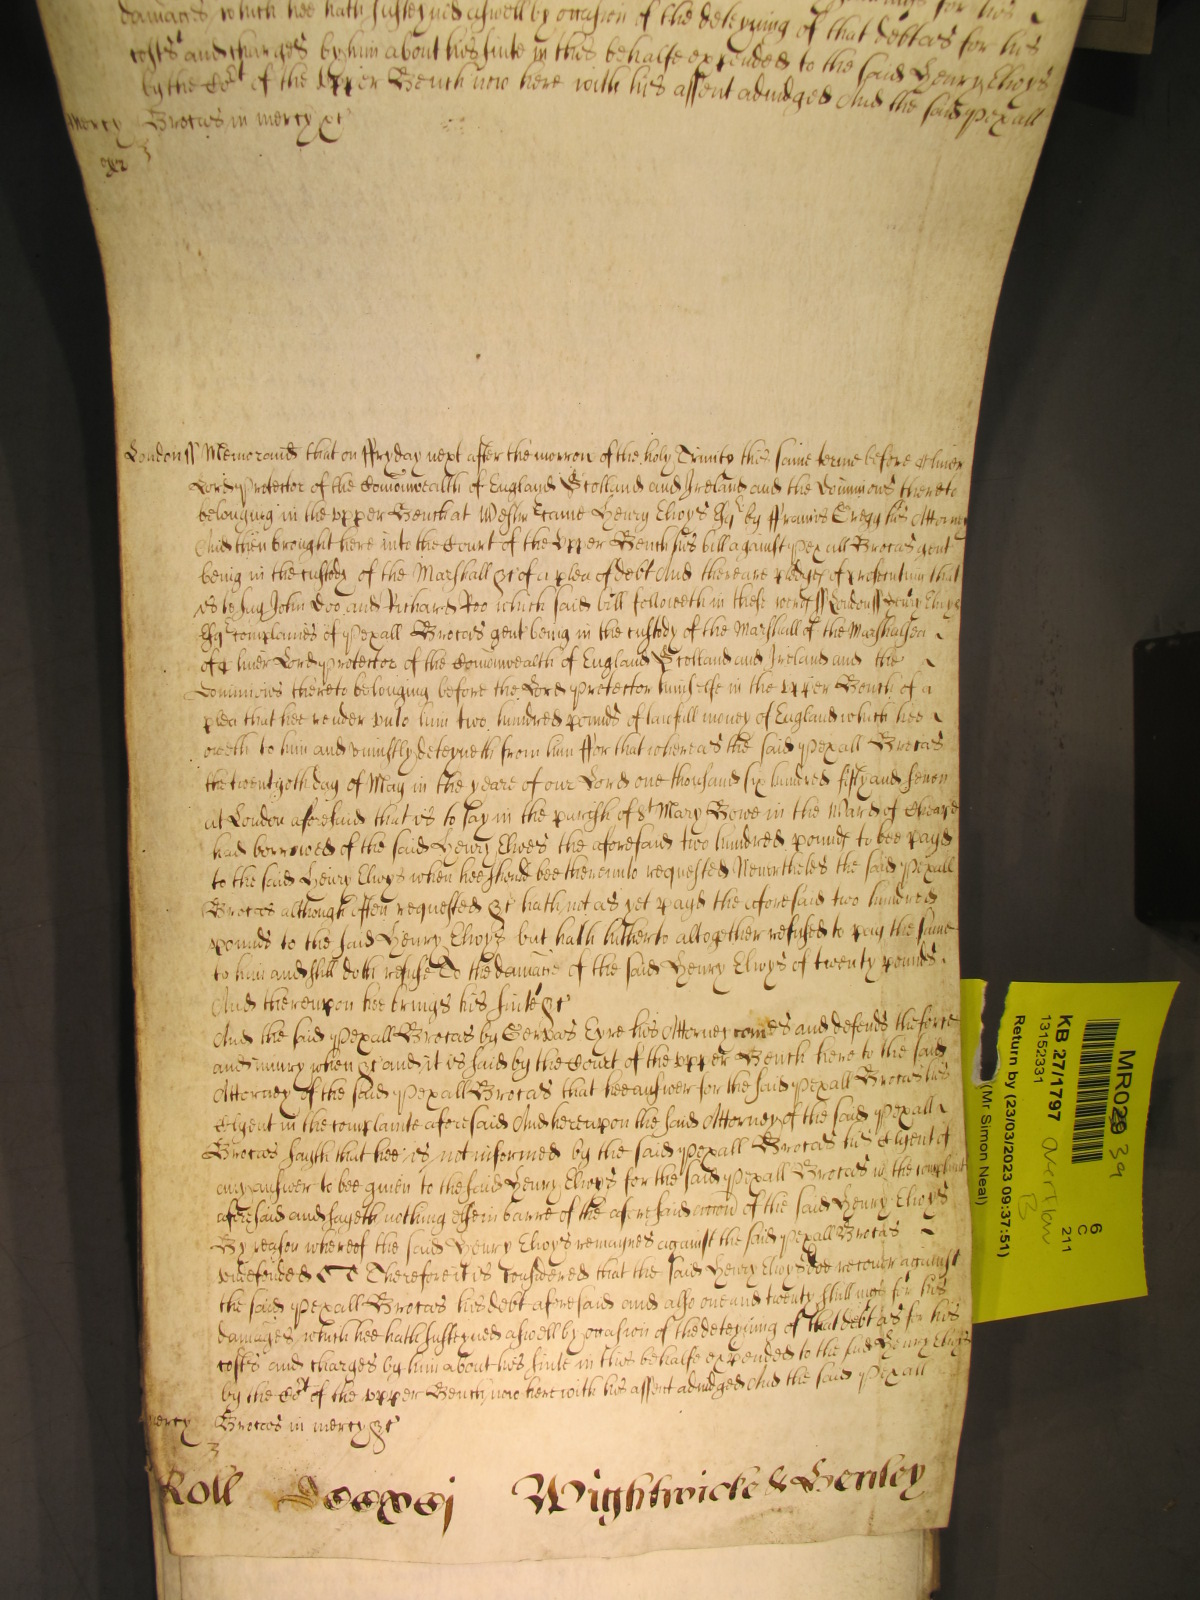 damages which hee hath susteyned aswell by occasion of the deteyning of that debt as for his
costs and charges by him about his suite in this behalfe expended to the said Henry Elwys
by the Cot of the Upper Bench now here with his assent adiudged And the said Pexall
Mercy Brocas in mercy &c
London ss Memorand that on ffryday next after the morrow of the holy Trinity this same terme before Oliver
Lord Protector of the Comonwealth of England Scotland and Ireland and the Dominions thereto
belonging in the upper Bench at Westmr came Henry Elwys Esqr by ffrancis Gregg his Attorney
And then brought here into the Court of the Upper Bench his bill against Pexall Brocas gent
being in the custody of the Marshall &c of a plea of debt And there are pledges of prosecution that
is to say John Doo and Richard Roo which said bill followeth in these words ss London ss Henry Elwys
Esqr complaines of Pexall Brocas gent being in the custody of the Marshall of the Marshalsea
of Oliver Lord Protector of the Comonwealth of England Scotland and Ireland and the
Dominions thereto belonging before the Lord Protector himselfe in the upper Bench of a
plea that hee render unto him two hundred pounds of lawfull money of England which hee
oweth to him and uniustly deteyneth from him ffor that whereas the said Pexall Brocas
the twentyoth day of May in the yeare of our Lord one thousand six hundred fifty and seven
at London aforesaid that is to say in the parish of St Mary Bowe in the Ward of Cheape
had borrowed of the said Henry Elwes the aforesaid two hundred pounds to bee payd
to the said Henry Elwys when hee should bee thereunto requested Neverthelesse the said Pexall
Brocas although often requested &c hath not as yet payd the aforesaid two hundred
pounds to the said Henry Elwys but hath hitherto altogether refused to pay the same
to him and still doth refuse To the damage of the said Henry Elwys of twenty pounds
And thereupon hee brings his suite &c
And the said Pexall Brocas by Gervas Eyre his Attorney comes and defends the force
and iniury when &c and it is said by the Court of the upper Bench here to the said
Attorney of the said Pexall Brocas that hee answer for the said Pexall Brocas his
Clyent in the complainte aforesaid And hereupon the said Attorney of the said Pexall
Brocas sayth that hee is not informed by the said Pexall Brocas his Clyent of
any answer to bee given to the said Henry Elwys for the said Pexall Brocas in the complaint
aforesaid and sayeth nothing else in barre of the aforesaid accion of the said Henry Elwys
By reason whereof the said Henry Elwys remaynes against the said Pexall Brocas
undefended Therefore it is considered that the said Henry Elwys doe recover against
the said Pexall Brocas his debt aforesaid and also one and twenty shillings for his
damages which hee hath susteyned aswell by occasion of the deteyning of that debt as for his
costs and charges by him about his suite in this behalfe expended to the said Henry Elwys
by the Cot of the upper Bench now here with his assent adiudged And the said Pexall
Mercy Brocas in mercy &c
Roll Wightwicke & Henley
MR029 39
KB 27/1797
13152331
6
C
211
Return by (23/03/2023 09:37:51)
(Mr Simon Neal)